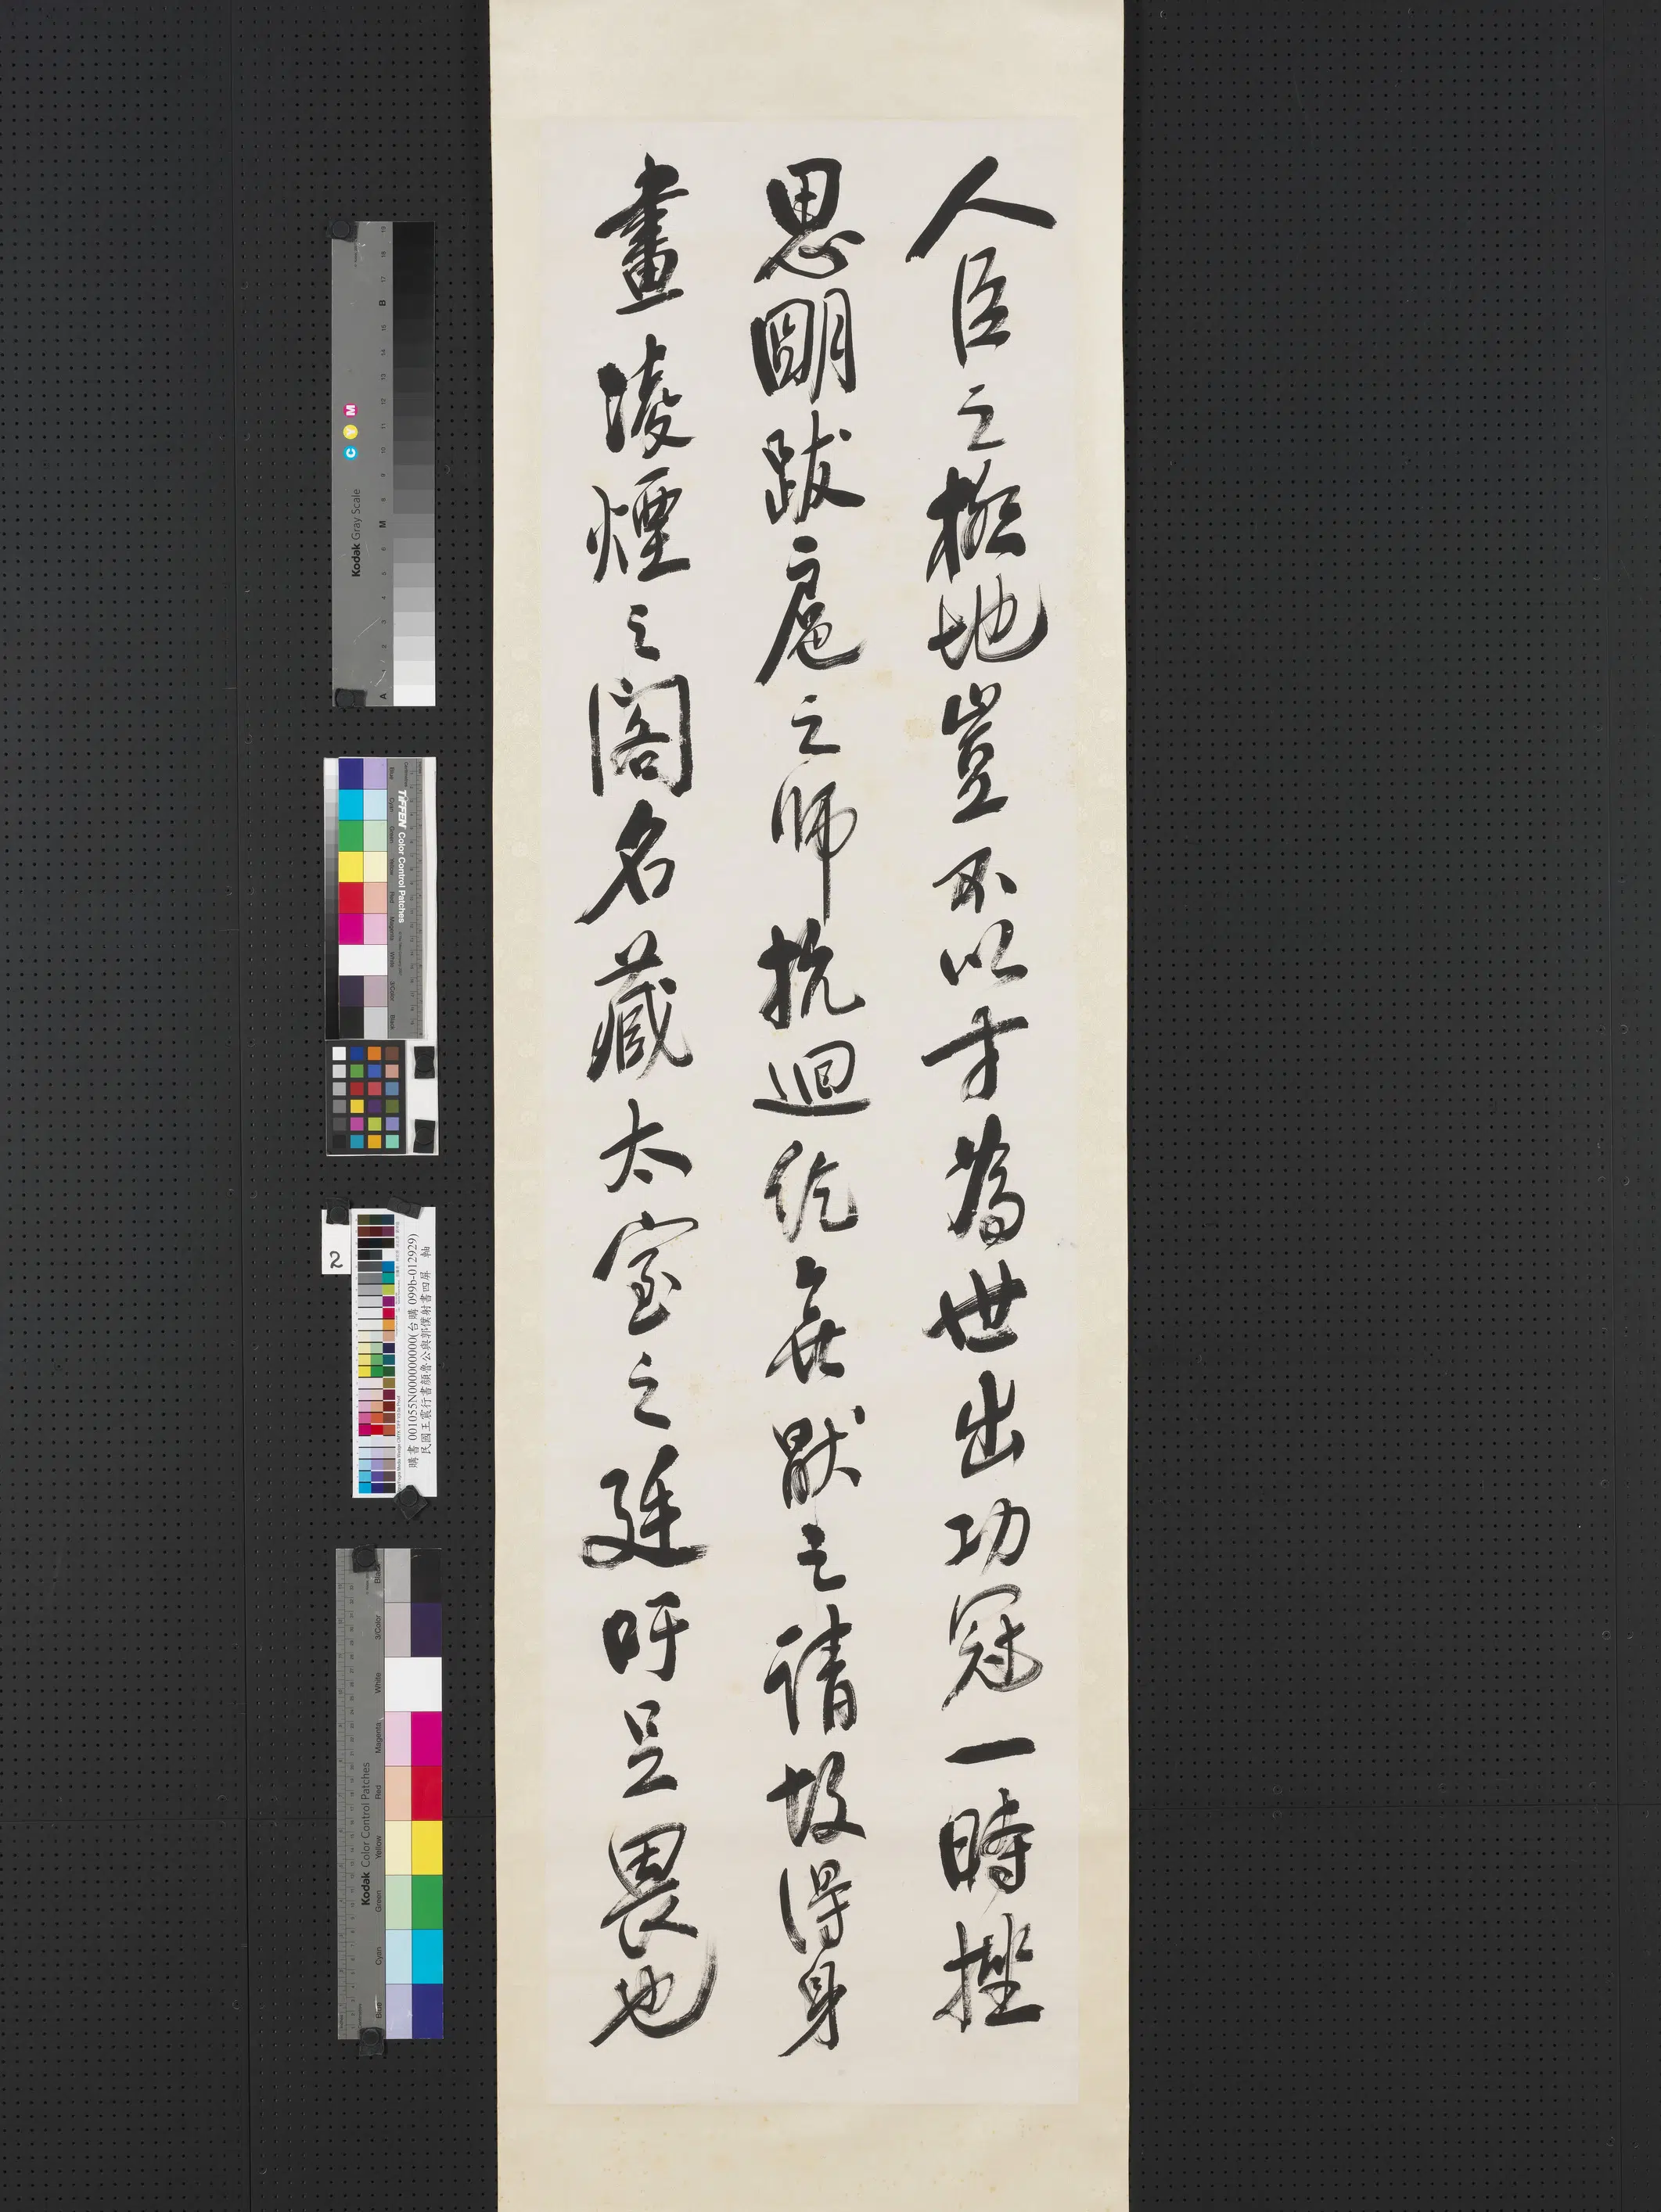 人臣之極地豈不以才為世出功冠一時挫
思明跋扈之師抗迴紇無猒之請故得身
畫淩煙之閣名藏太室之廷吁足畏也
Kodak Gray Scale
C Y M
A 1 2 3 4 5 6 M 8 9 10 11 12 13 14 15 B 17 18 19
TIFFEN Color Control Patches
Blue Cyan Green Yellow Red Magenta White 3/Color Black
2
購書 001055N000000000(台購 099b-012929)
民國王震行書顏魯公與郭僕射書四屏 軸
Kodak Color Control Patches
Blue Cyan Green Yellow Red Magenta White 3/Color Black